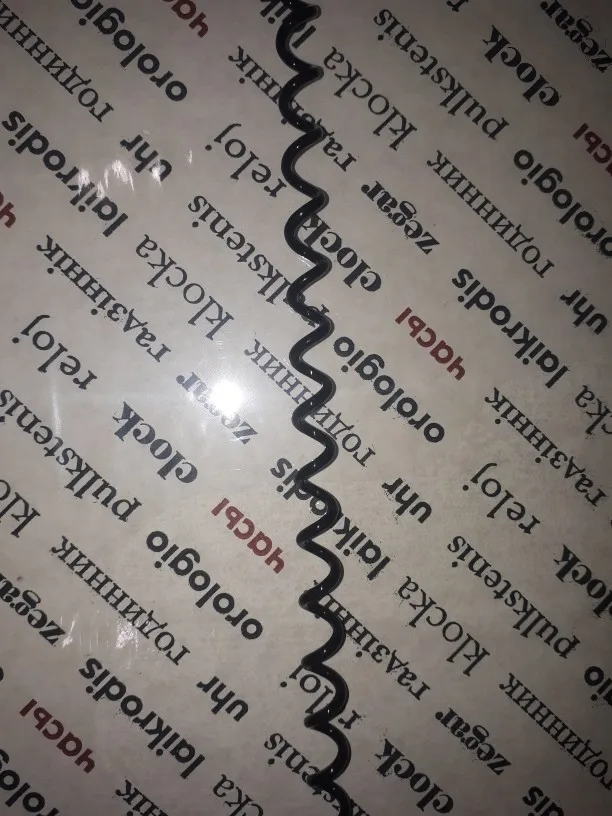 часы
orologio
годинник
uhr
laikrodis
klocka
pulkstenis
reloj
гадзіннік
zegar
clock
klocka
pulkstenis
clock
zegar
часы
orologio
годинник
uhr
laikrodis
гадзіннік
klocka
pulkstenis
reloj
zegar
clock
часы
orologio
годинник
uhr
laikrodis
гадзіннік
reloj
klocka
pulkstenis
clock
zegar
годинник
часы
orologio
uhr
laikrodis
reloj
clock
zegar
годинник